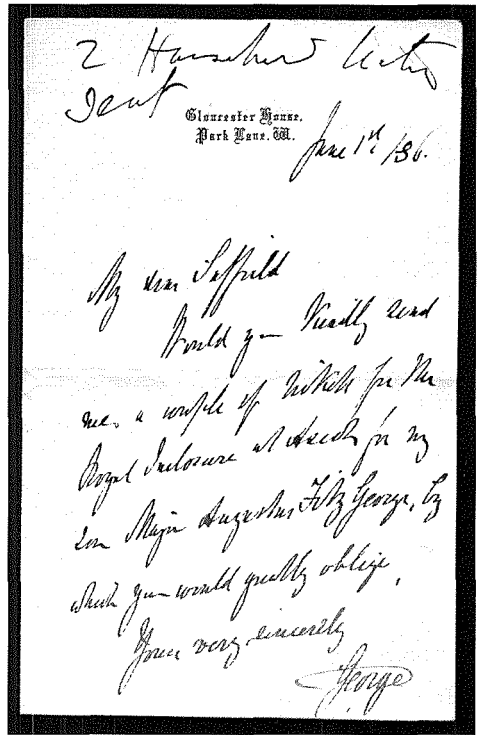 2 Household tickets
Sent
Gloucester House.
Park Lane. W.
June 1st /86.
My dear Suffield
Would you kindly send
me a couple of tickets for the
Royal Inclosure at Ascot for my
son Major Augustus FitzGeorge, by
which you would greatly oblige,
Yours very sincerely
George